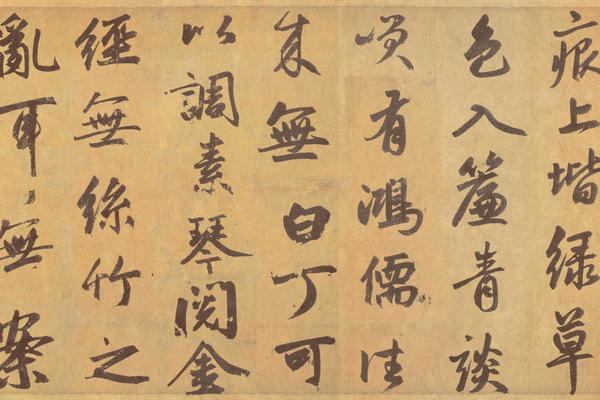 痕上堦緑草
色入簾青談
咲有鴻儒往
来無白丁可
以調素琴閲金
經無絲竹之
亂耳無案